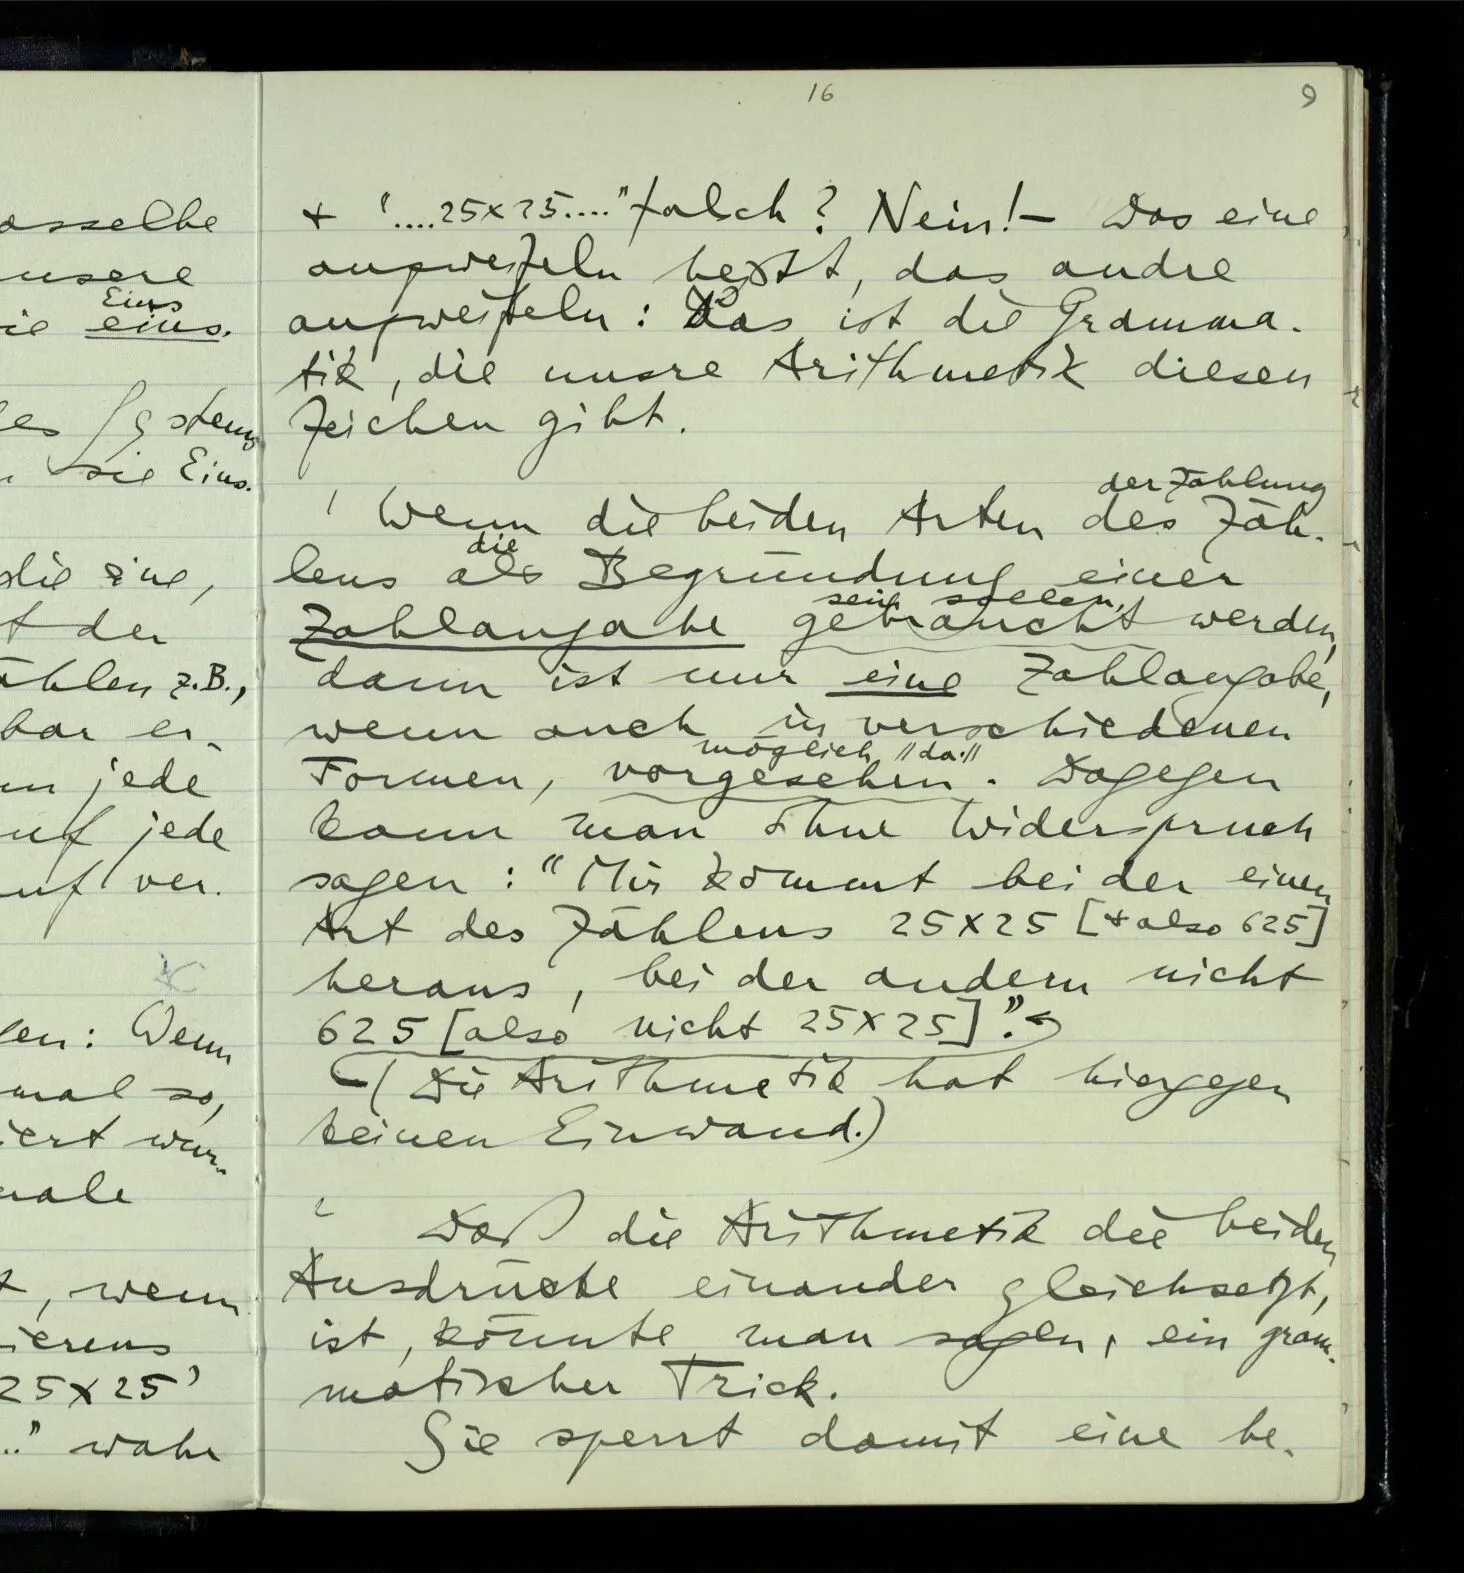 asselbe
unsere
Eins
ie eins.
es Systems
n sie Eins.
die eine,
t der
ählen z.B.,
bar er-
nn jede
uf jede
uf ver-
len: Wenn
mal so,
iert wur-
male
t, wenn
ierens
25×25'
..." wahr
16 9
+ '....25×25...." falsch? Nein!— Das eine
anzweifeln heißt, das andre
anzweifeln: Das ist die Gramma-
tik, die unsre Arithmetik diesen
Zeichen gibt.
der Zählung
/ Wenn die beiden Arten des Zäh-
die
lens als Begründung einer
sein sollen,
Zahlangabe gebraucht werden,
dann ist nur eine Zahlangabe,
wenn auch in verschiedenen
möglich //da://
Formen, vorgesehen. Dagegen
kann man ohne Widerspruch
sagen: "Mir kommt bei der einen
Art des Zählens 25×25 [+ also 625]
heraus, bei der andern nicht
625 [also nicht 25×25]".
(Die Arithmetik hat hiergegen
keinen Einwand.)
Daß die Arithmetik die beiden
Ausdrücke einander gleichsetzt,
ist, könnte man sagen, ein gram-
matischer Trick.
Sie sperrt damit eine be-